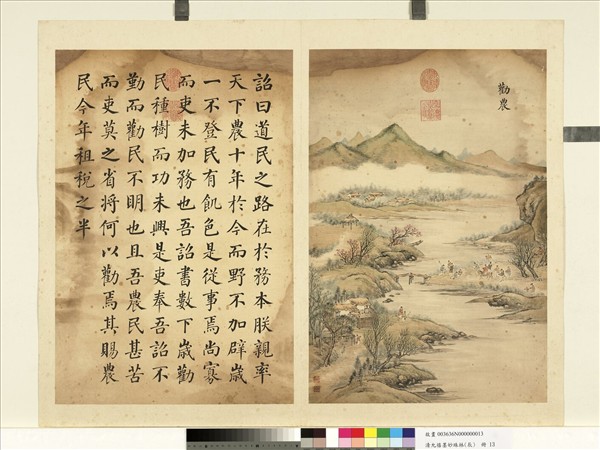 勸農
詔曰道民之路在於務本朕親率
天下農十年於今而野不加辟歲
一不登民有飢色是從事焉尚寡
而吏未加務也吾詔書數下歲勸
民種樹而功未興是吏奉吾詔不
勤而勸民不明也且吾農民甚苦
而吏莫之省將何以勸焉其賜農
民今年租稅之半
故畫 003636N000000013